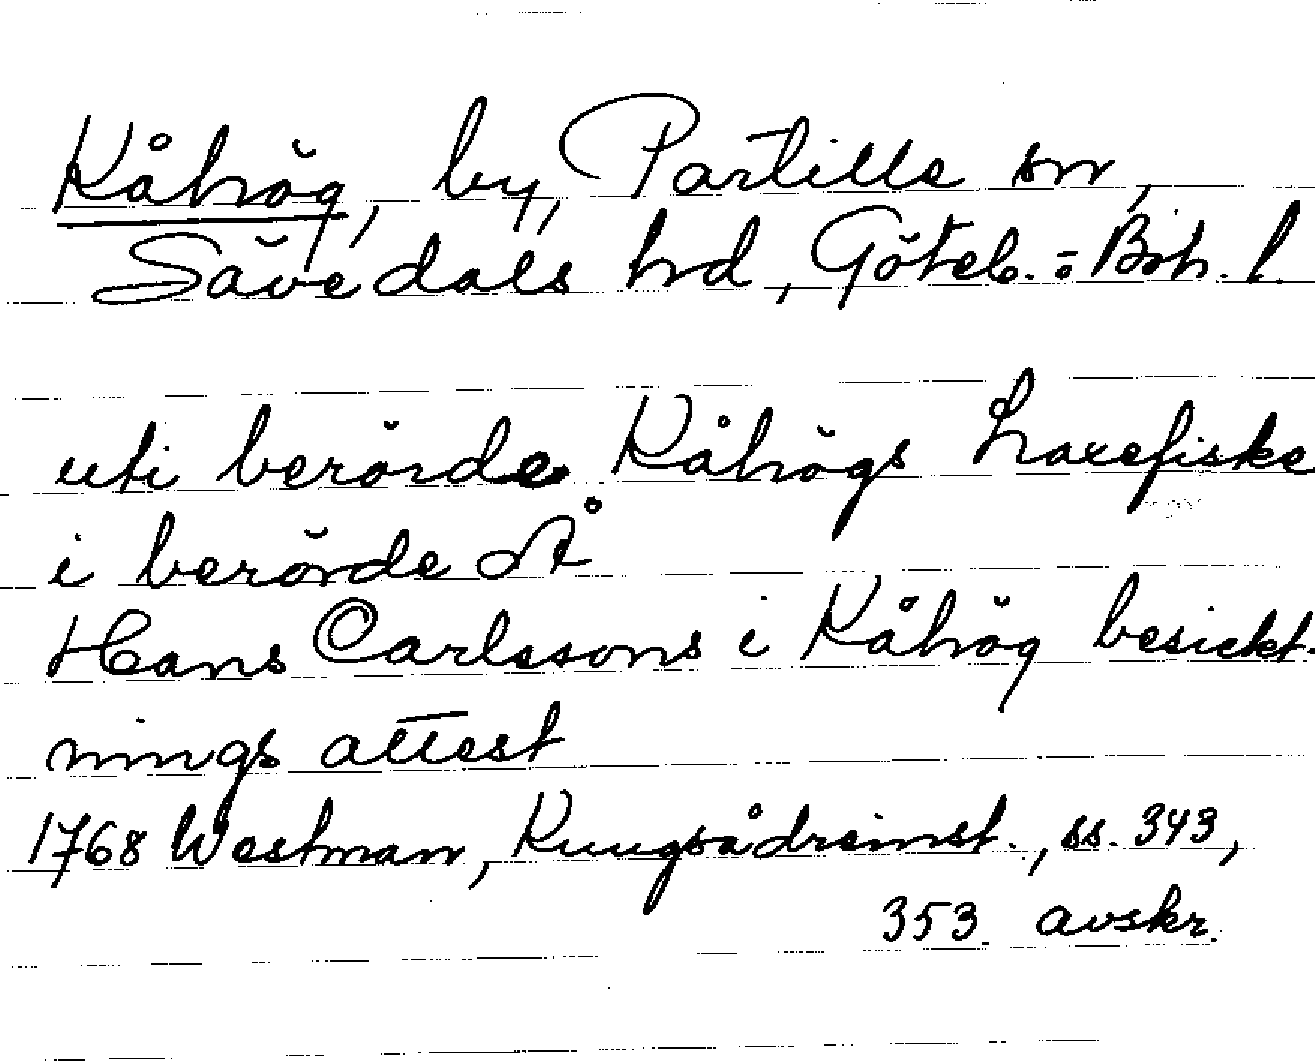 Kåhög, by, Partille sn,
Sävedals hd, Göteb.=Boh. l.
uti berörde Kåhögs Laxefiske
i berörde Å
Hans Carlssons i Kåhög besickt-
nings attest
1768 Westman, Kungsådreinst., ss. 343,
353 avskr.